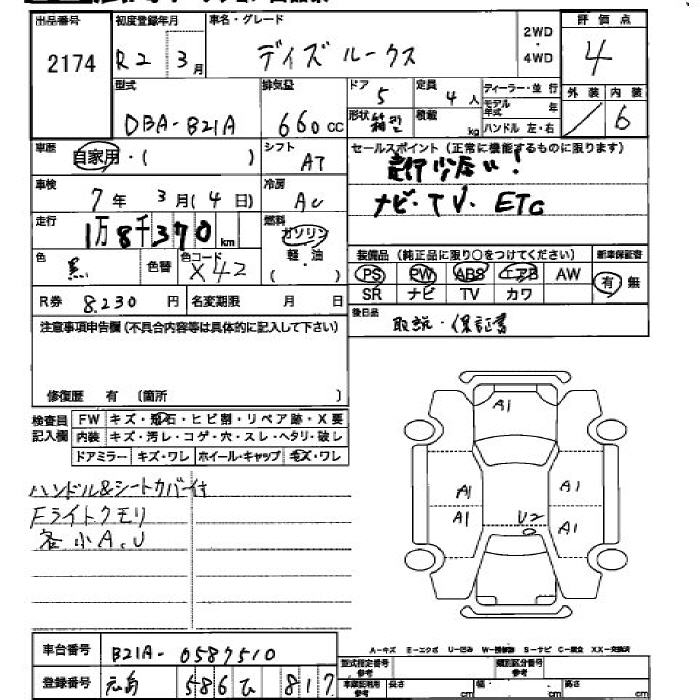 出品番号 初度登録年月 車名・グレード 2WD・4WD 評価点
2174 R2 3月 デイズ ルークス 4
型式 排気量 ドア 5 定員 4人 ディーラー・並行 外装 内装
DBA-B21A 660cc 形状 積載 kg モデル年式 年 ハンドル 左・右 / 6
車歴 自家用・( ) シフト AT セールスポイント(正常に機能するものに限ります)
走行少ない!
車検 7年 3月(4日) 冷房 AC ナビ・TV. ETC
走行 1万8千370km 燃料 ガソリン 軽・油 ( )
色 黒 色替 色コード X42 装備品(純正品に限り○をつけてください) 新車保証書
PS PW ABS エアB AW 有 無
R券 8.230円 名変期限 月 日 SR ナビ TV カワ
注意事項申告欄(不具合内容等は具体的に記入して下さい) 後日品 取説・保証書
修復歴 有 (箇所 )
検査員記入欄 FW キズ・飛石・ヒビ割・リペア跡・X要
内装 キズ・汚レ・コゲ・穴・スレ・ヘタリ・破レ
ドアミラー キズ・ワレ ホイール・キャップ キズ・ワレ
A1
ハンドル&シートカバー付 A1 A1
Fライトクモリ A1 U2 A1
各小A.U
A-キズ E-エクボ U-凹み W-補修跡 S-サビ C-腐食 XX-交換済
車台番号 B21A-0587510 型式指定番号 参考 類別区分番号 参考
登録番号 586 ひ 817 車庫証明用 参考 長さ cm 幅・ cm 高さ cm